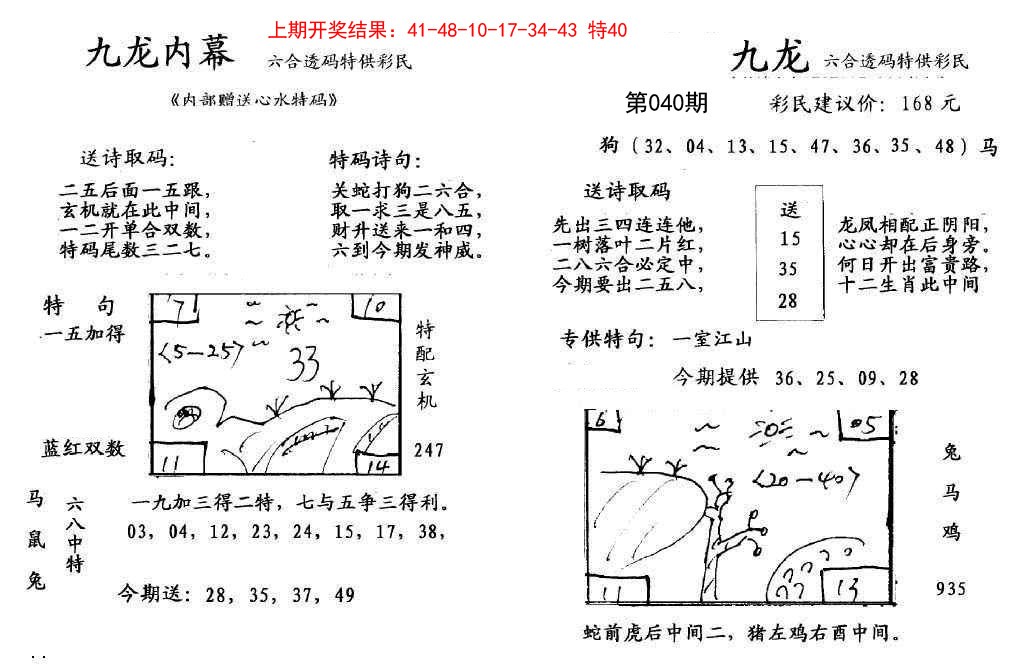 上期开奖结果：41-48-10-17-34-43 特40
九龙内幕 六合透码特供彩民
《内部赠送心水特码》
送诗取码：
二五后面一五跟，
玄机就在此中间，
一二开单合双数，
特码尾数三二七。
特码诗句：
关蛇打狗二六合，
取一求三是八五，
财升送来一和四，
六到今期发神威。
特 句
一五加得
蓝红双数
17
10
〈5—25〉
33
11
14
特配玄机
247
马鼠兔
六八中特
一九加三得二特，七与五争三得利。
03，04，12，23，24，15，17，38，
今期送：28，35，37，49
九龙 六合透码特供彩民
第040期 彩民建议价：168元
狗（32、04、13、15、47、36、35、48）马
送诗取码
先出三四连连他，
一树落叶二片红，
二八六合必定中，
今期要出二五八，
送
15
35
28
龙凤相配正阴阳，
心心却在后身旁。
何日开出富贵路，
十二生肖此中间
专供特句：一室江山
今期提供 36、25、09、28
6
5
〈20—40〉
11
13
兔
马
鸡
935
蛇前虎后中间二，猪左鸡右酉中间。